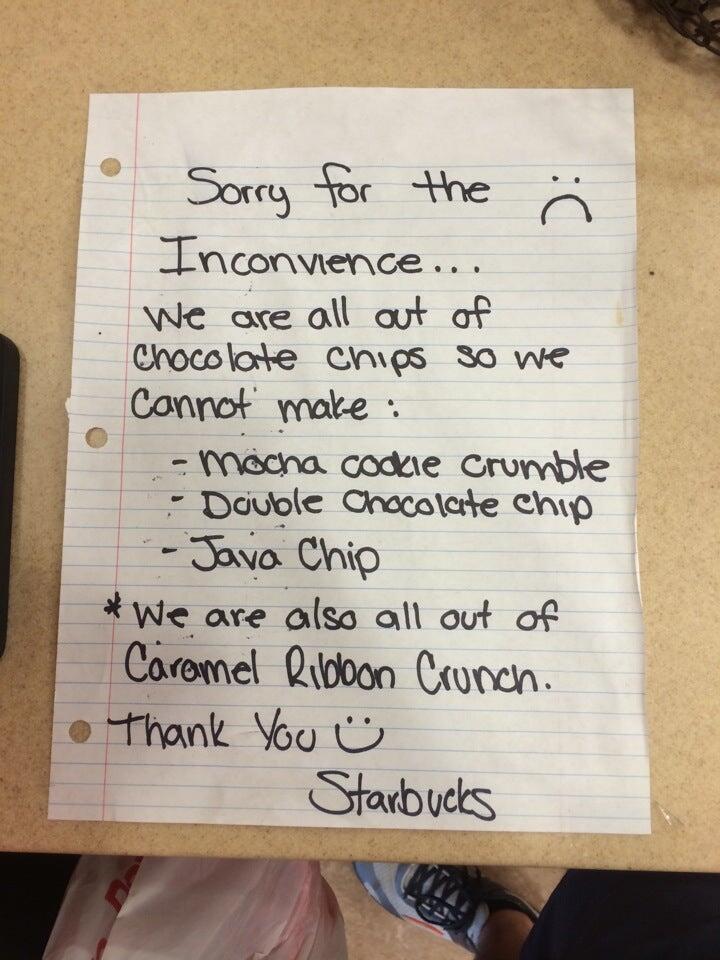 Sorry for the
Inconvience...
We are all out of
chocolate chips so we
cannot make :
- mocha cookie crumble
- Double chocolate chip
- Java Chip
* We are also all out of
Caramel Ribbon Crunch.
Thank You
Starbucks